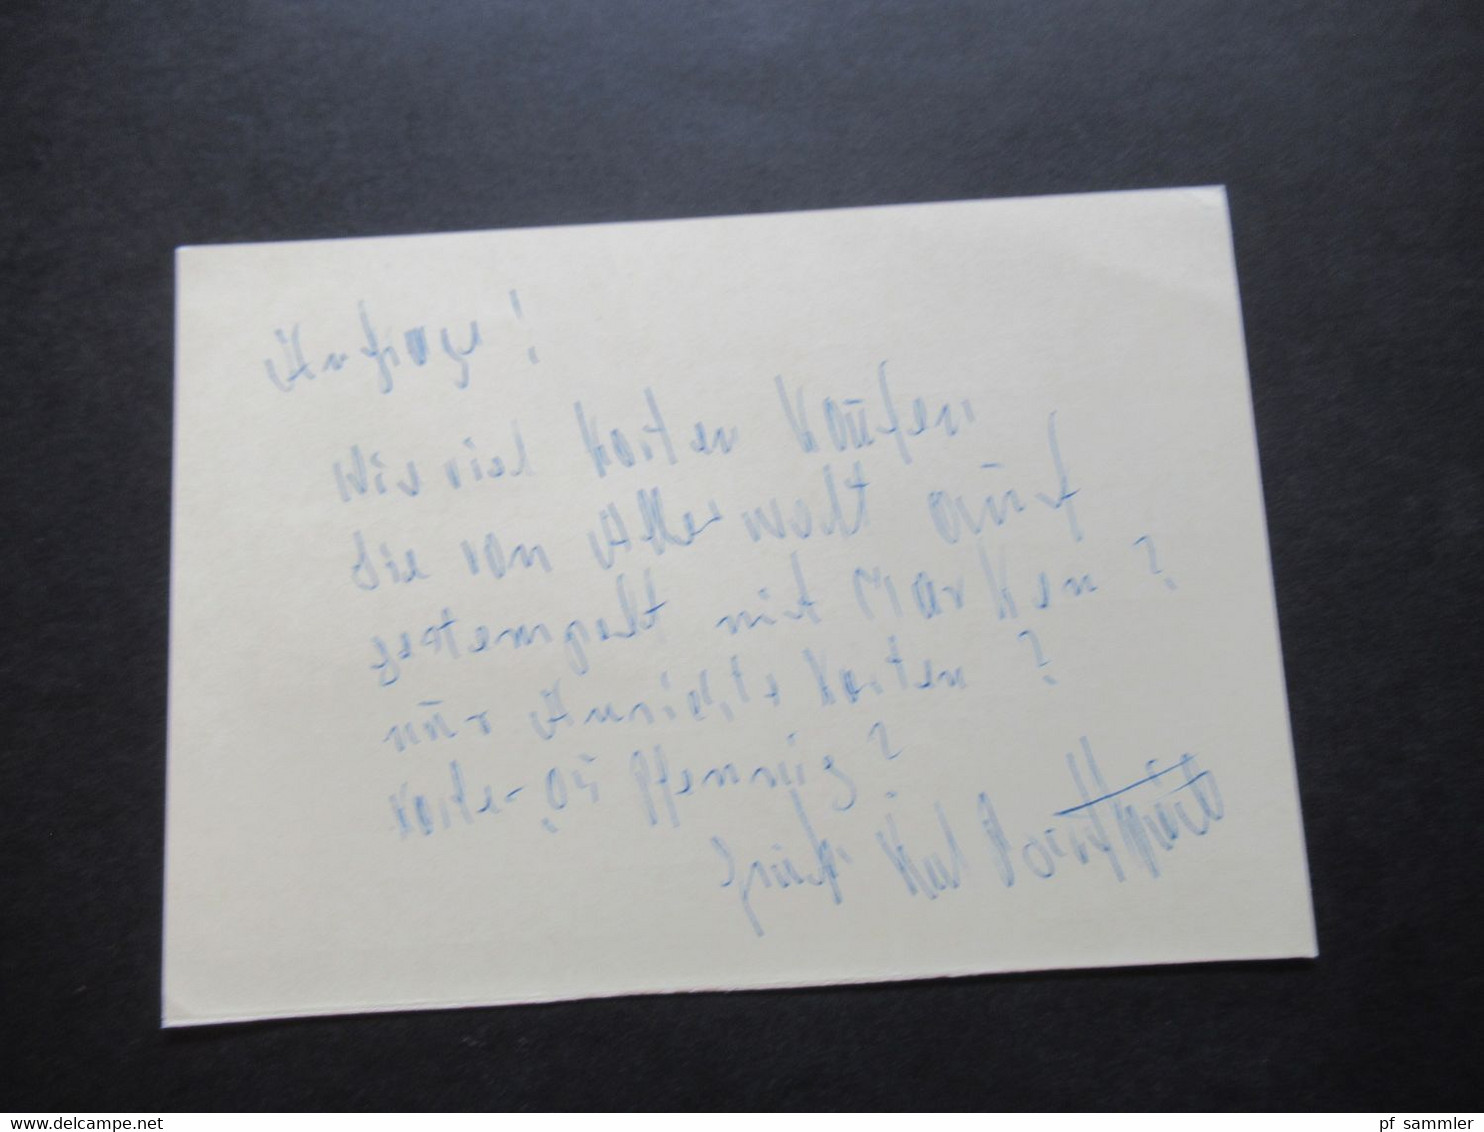 Anfrage!
Wie viel Karten Kaufen
Sie von Aller welt auf
gestempelt mit Marken?
nur Ansichts Karten?
Karte -,05 Pfennig?
Gruß Karl
www.delcampe.net
pf_sammler